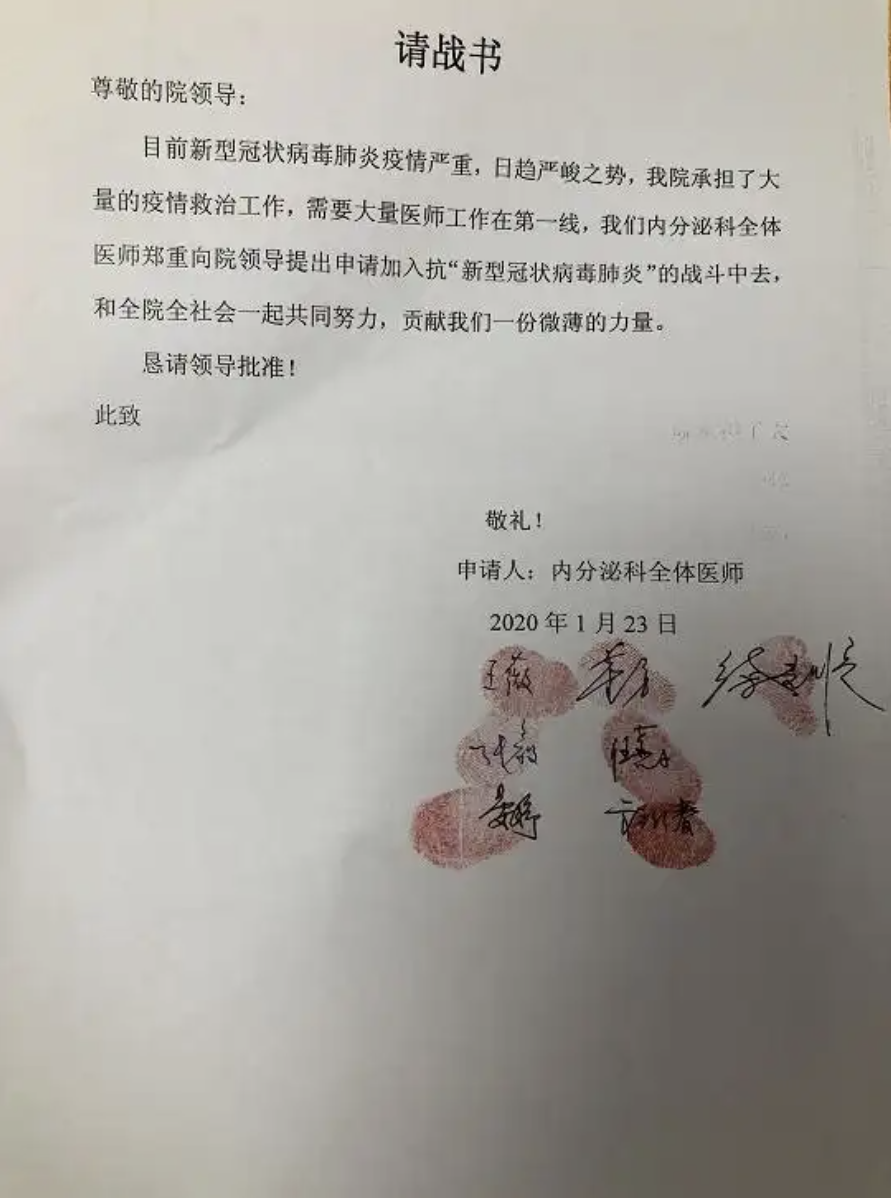 请战书
尊敬的院领导：
目前新型冠状病毒肺炎疫情严重，日趋严峻之势，我院承担了大
量的疫情救治工作，需要大量医师工作在第一线，我们内分泌科全体
医师郑重向院领导提出申请加入抗“新型冠状病毒肺炎”的战斗中去，
和全院全社会一起共同努力，贡献我们一份微薄的力量。
恳请领导批准！
此致
敬礼！
申请人：内分泌科全体医师
2020 年 1 月 23 日
王薇